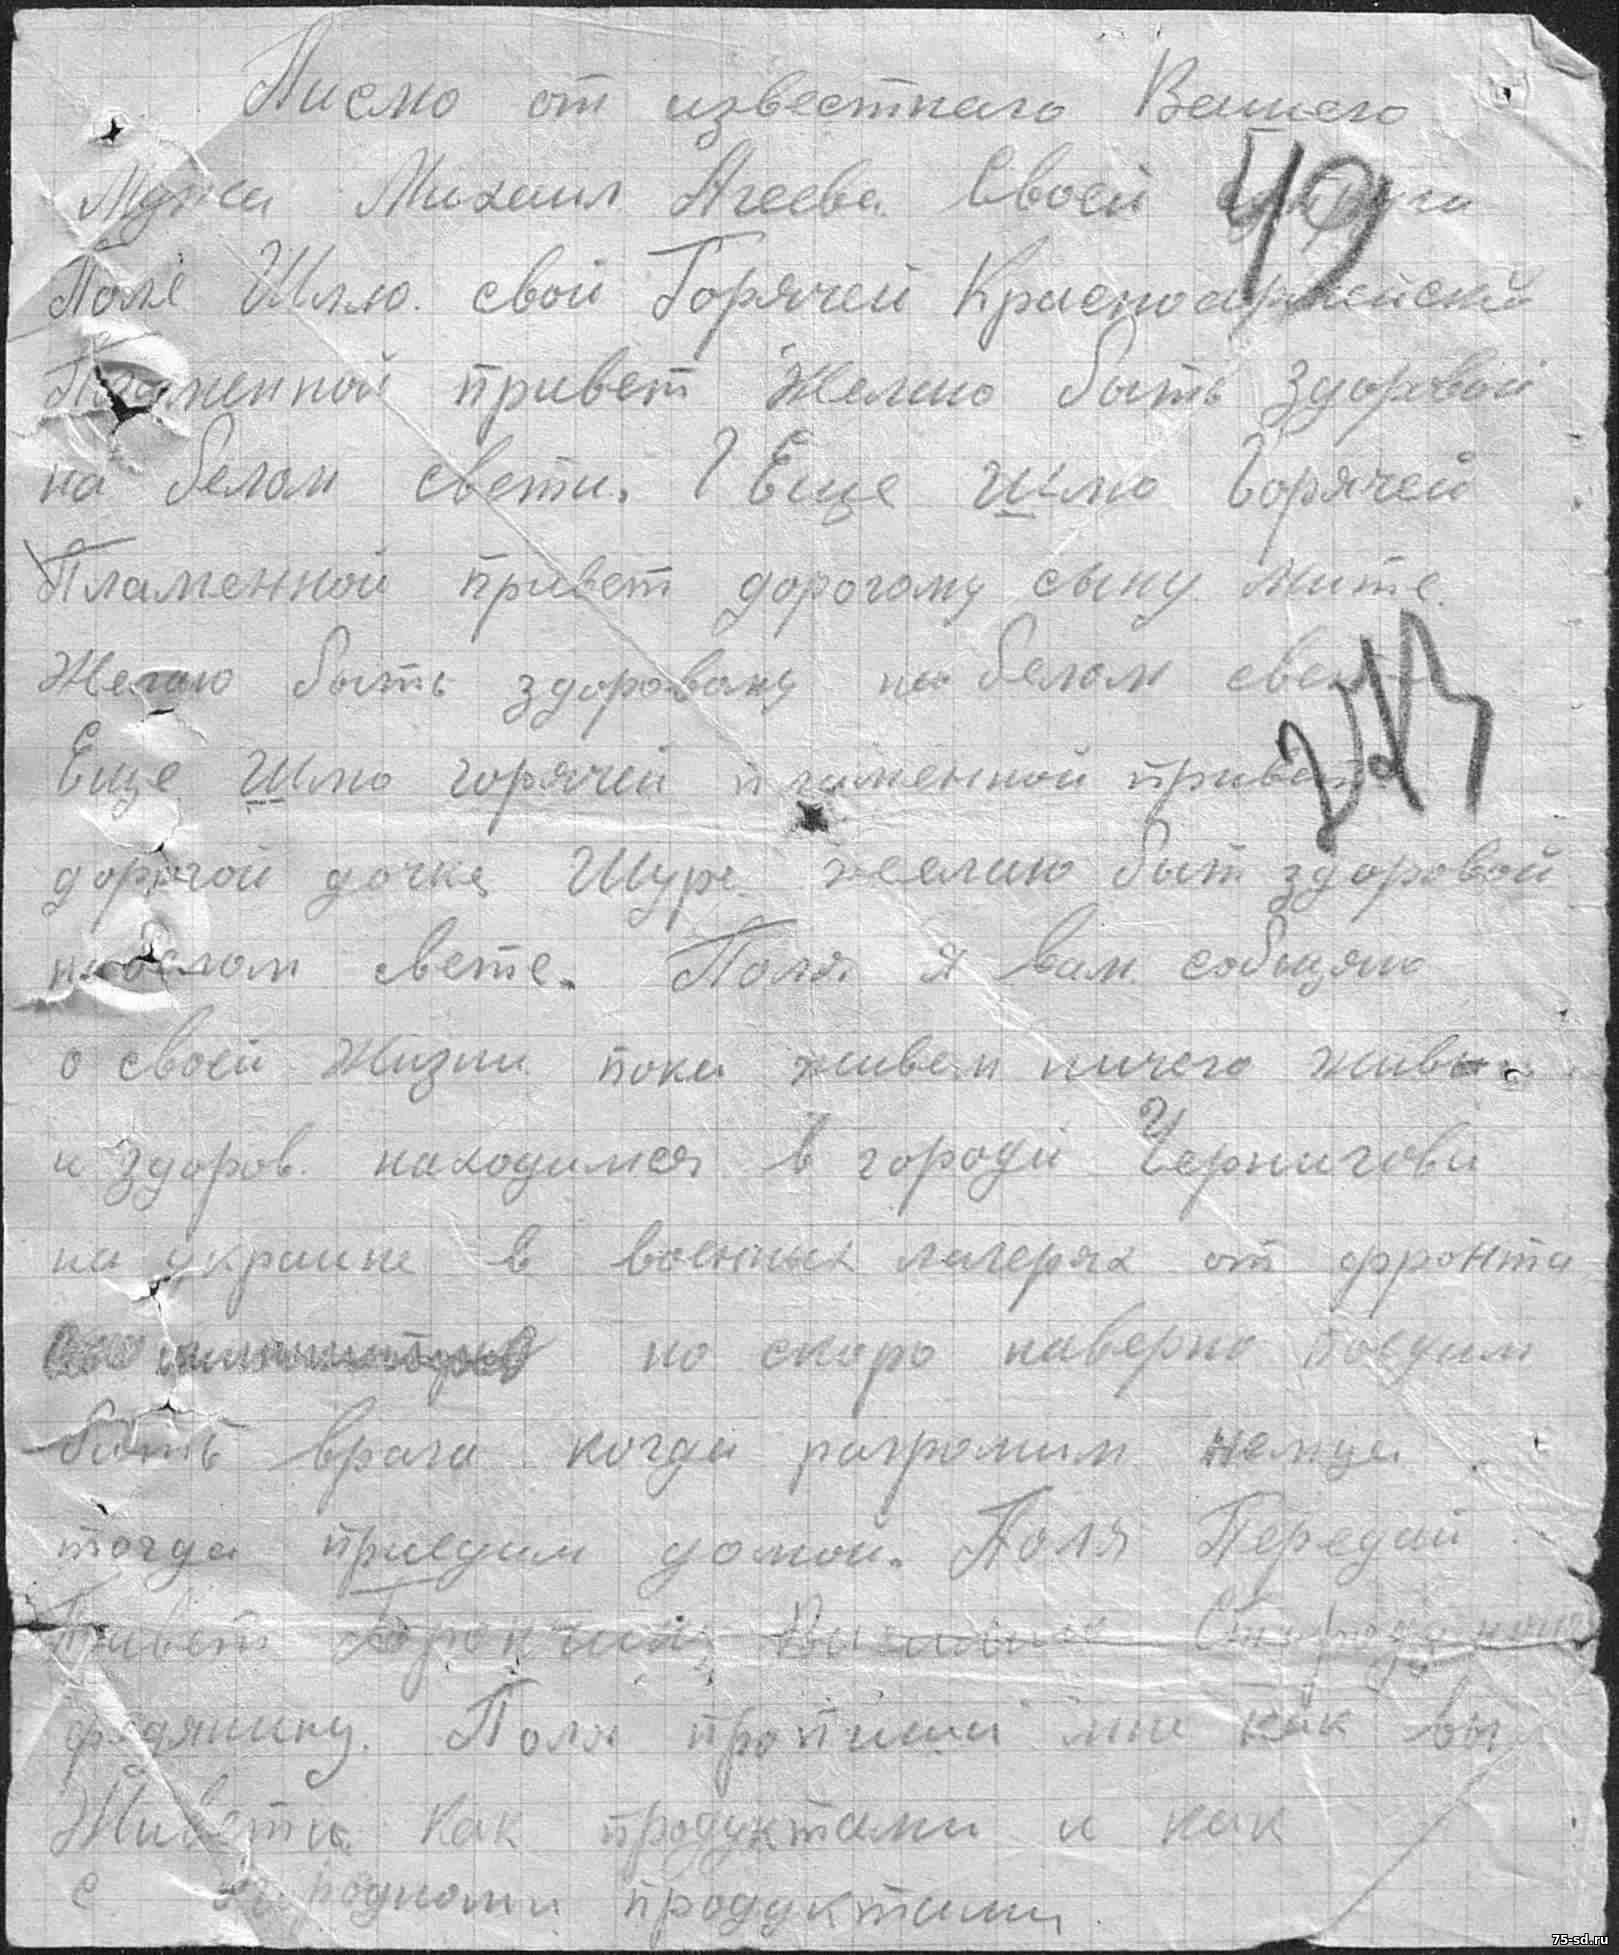 Писмо от известнаго Вашего
Мужа Михаил Агеева Своей
Поле Шлю. свой Горячей Красноармейски
Пламенной привет Желаю быть здоровой
на белом свети. Еще шлю Горячей
Пламенной привет дорогому сыну Мите.
Желаю быть здоровому на белом свете
Еще шлю горячей пламенной привет
дорогой дочке Шуре желаю быт здоровой
на белом свете. Поля я вам собщяю
о своей жизни пока живем ничего живы
и здоров. находимся в городи Чернигови
на украине в военных лагерях от фронта
но скоро наверно поедим
бить врага когда разгромим немца
тогда приедим домой. Поля Передай
Привет
федякину. Поля пропиши мне как вы
Живети как продуктами и как
с продуктами
49
75-sd.ru